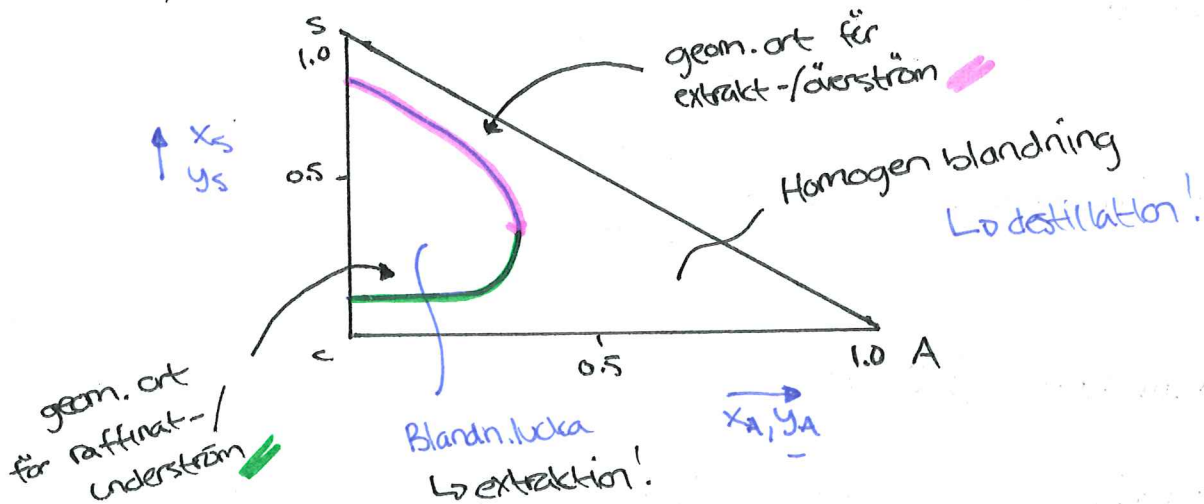 S
1.0
geom. ort för
extrakt-/överström
xs
ys
0.5
Homogen blandning
↳ destillation!
c
0.5
1.0 A
geom. ort
för raffinat-/
underström
Blandn.lucka
↳ extraktion!
xA, yA